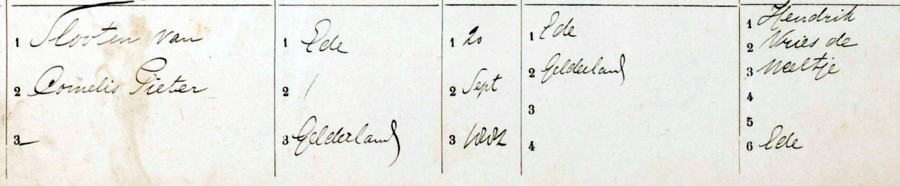 1 Slooten van
2 Cornelis Pieter
3 —
1 Ede
2 /
3 Gelderland
1 20
2 Sept
3
1 Ede
2 Gelderland
3
4
1 Hendrik
2 Vries de
3 Neeltje
4
5
6 Ede